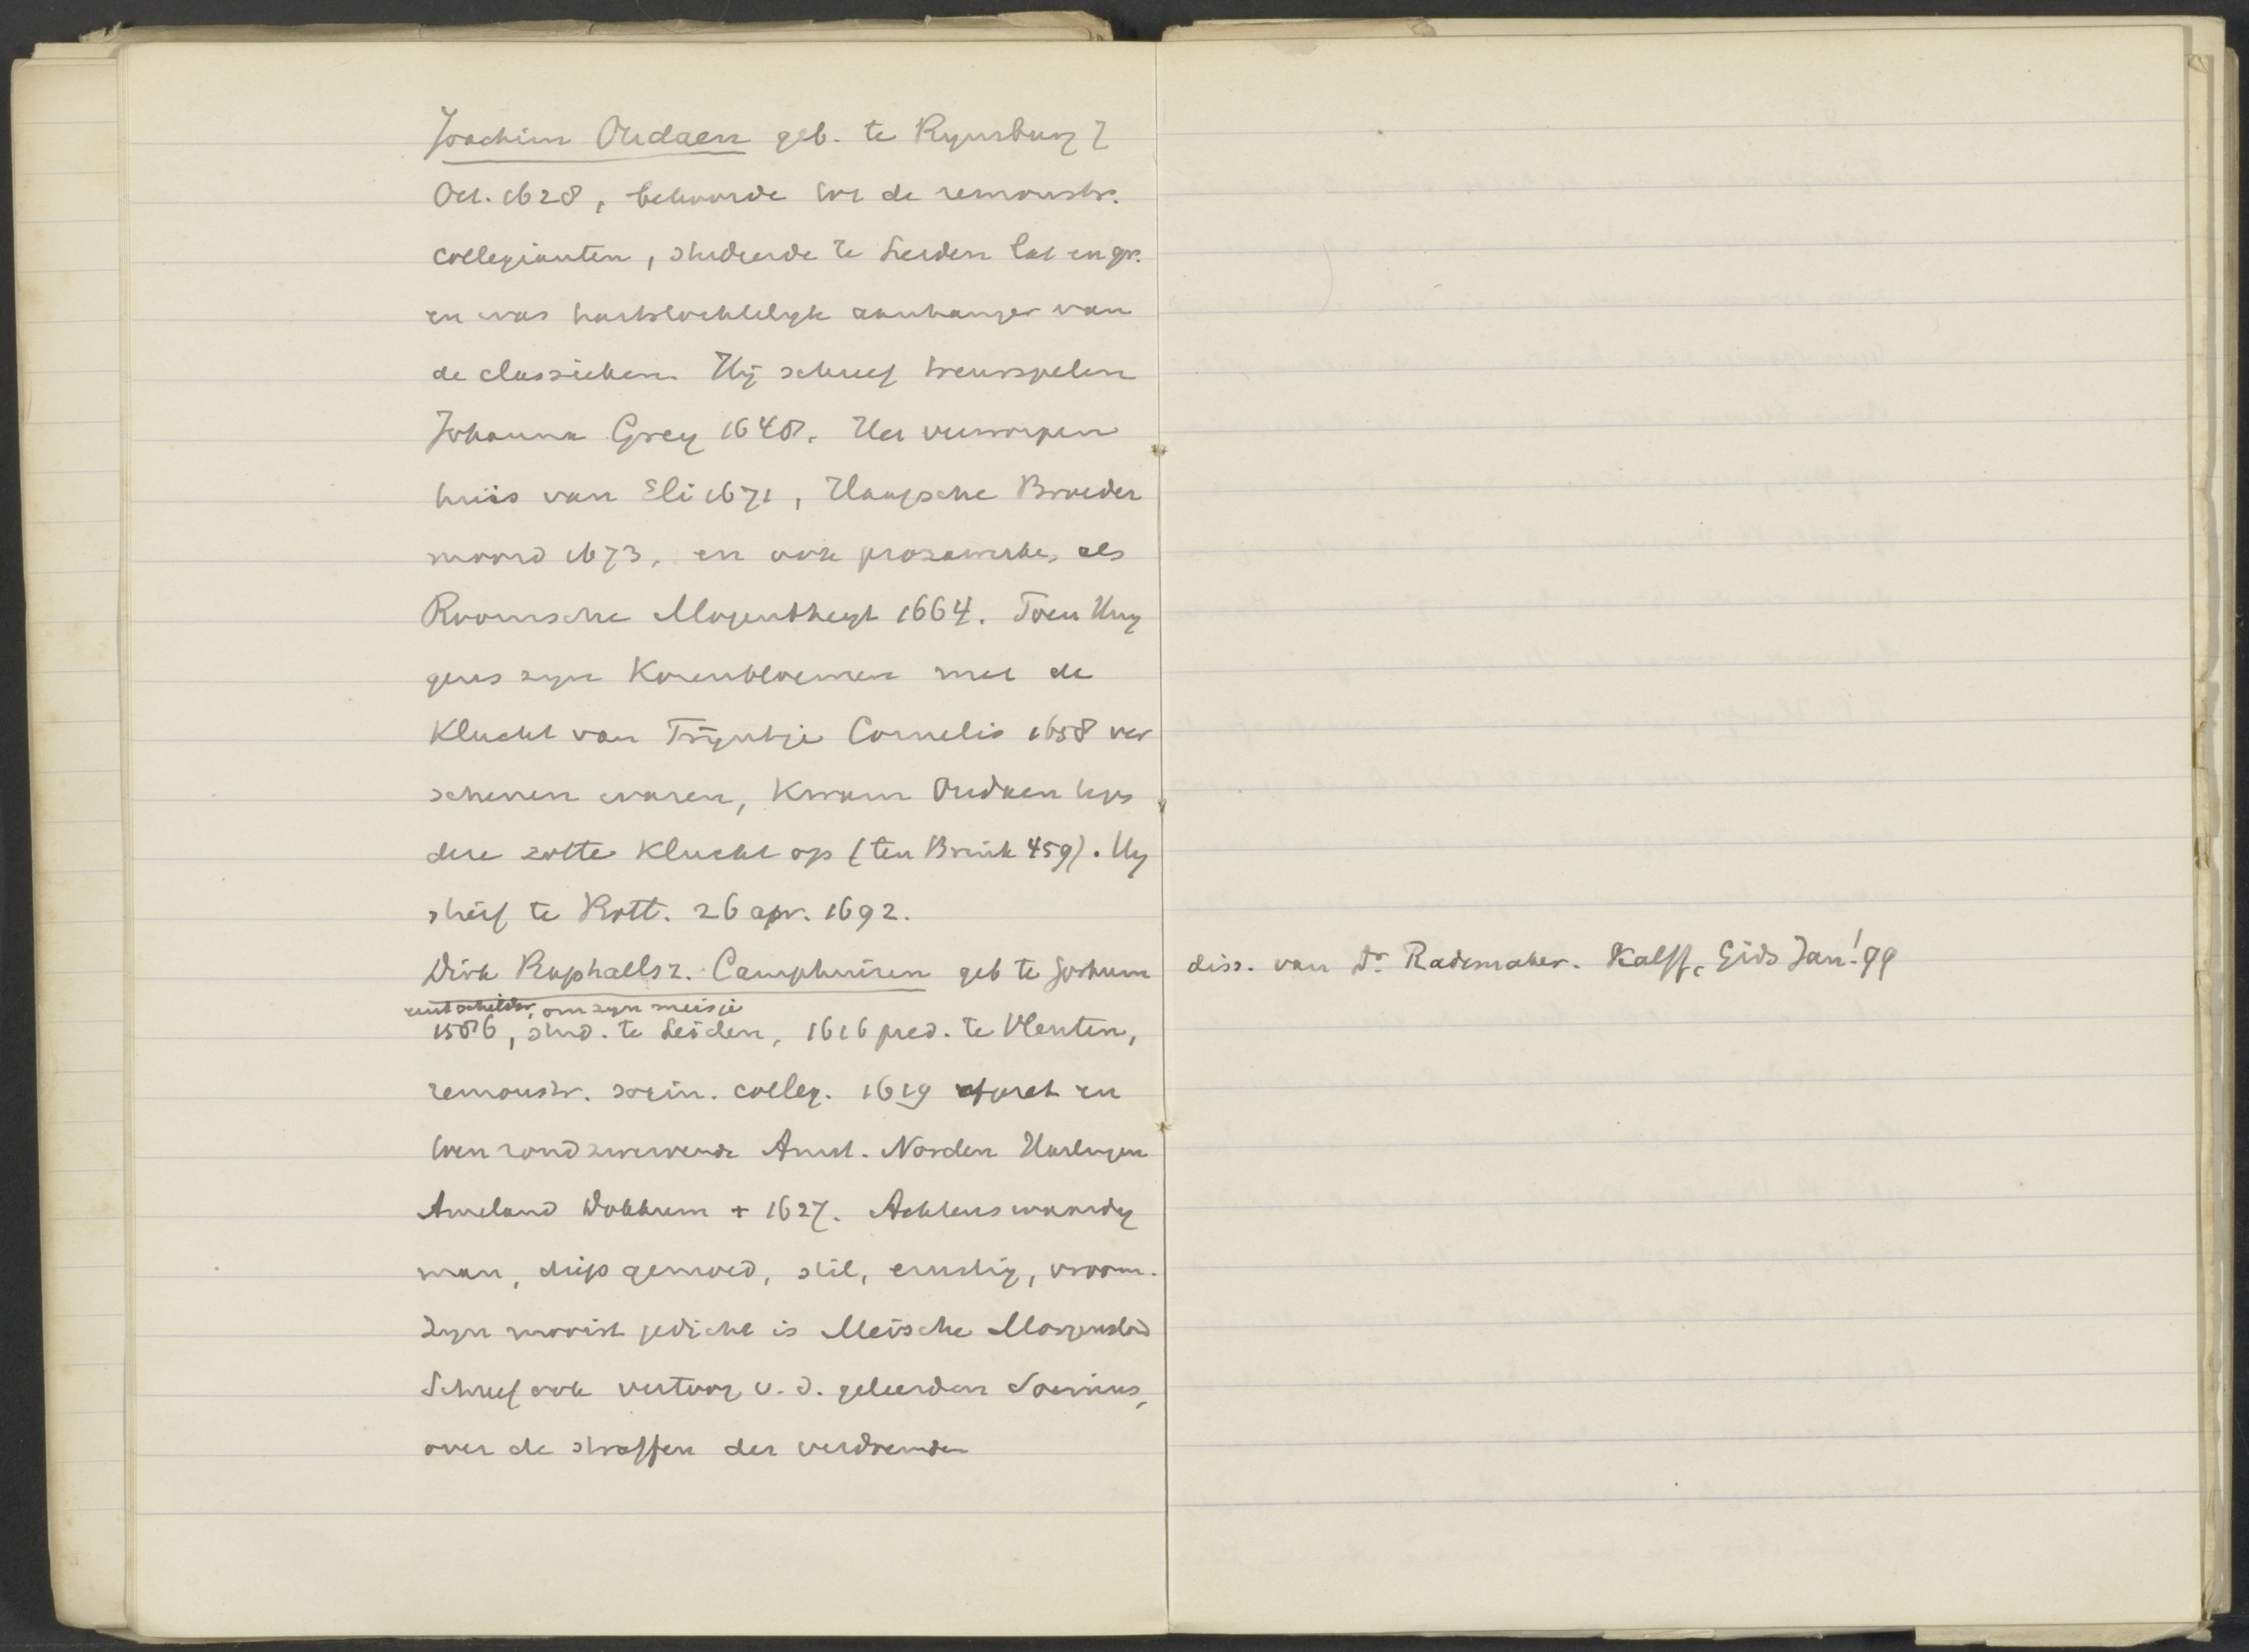 Joachim Oudaen geb. te Rynsburg 7
Oct. 1628, behoorde tot de remonstr.
collegianten, studeerde te Leiden lat en gr.
en was hartstochtelyk aanhanger van
de classieken. Hij schreef treurspelen
Johanna Grey 1648. Het verworpen
huis van Eli 1671, Haagsche Broeder
moord 1673, en ook prozawerke, als
Roomsche Mogentheyt 1664. Toen Huy
gens zyn Korenbloemen met de
Klucht van Trijntje Cornelis 1658 ver
schenen waren, kwam Oudaen tegs
deze zotte klucht op (ten Brink 459). Hy
stierf te Rott. 26 apr. 1692.
Dirk Raphaëlsz. Camphuisen geb te Gorkum diss. van Dr Rademaker. Kalff, Gids Jan! 99
eerst schilder, om zyn meisje
1586, stud. te Leiden, 1616 pred. te Vleuten,
remonstr. socin. colleg. 1619 afgezet en
toen rondzwervende Amst. Norden Harlingen
Ameland Dokkum + 1627. Achtenswaardig
man, diep gemoed, stil, ernstig, vroom.
Zyn mooist gedicht is Meische Morgenstond
Schreef ook vertoog v. d. geleerden Socinus,
over de straffen der verdoemden